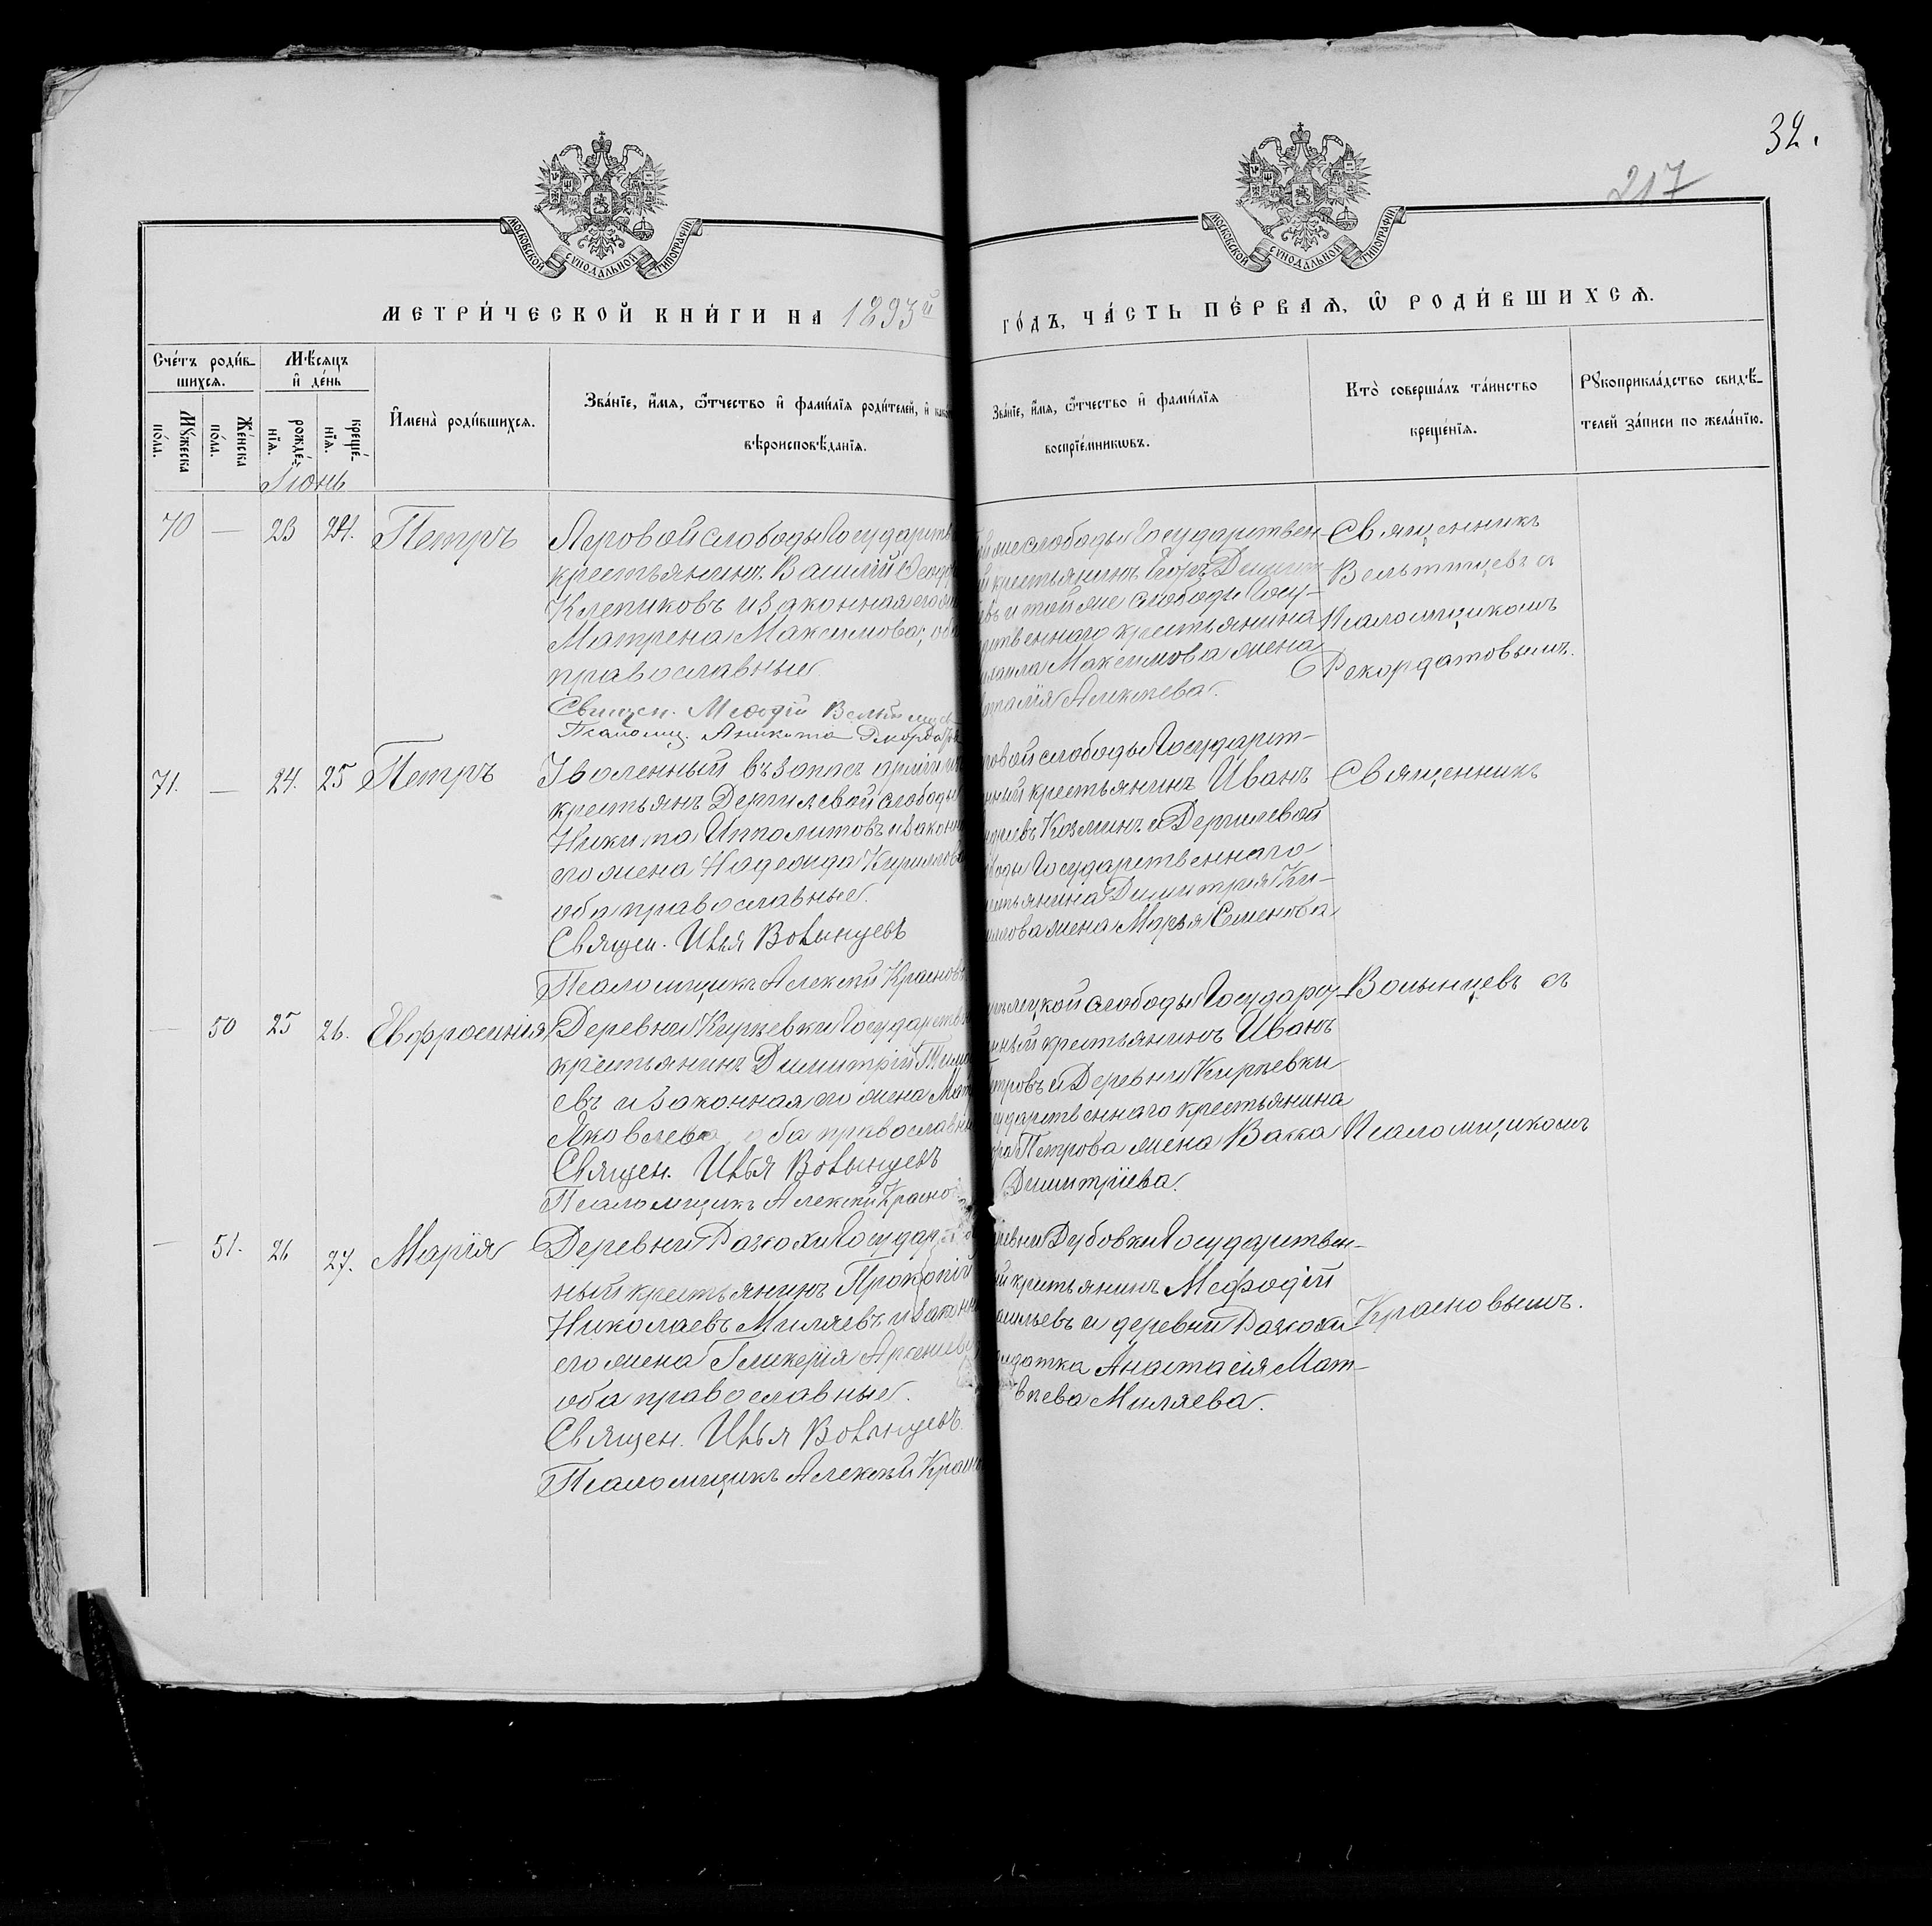 32.
217
МОСКОВСКОЙ СѴНОДАЛЬНОЙ ТИПОГРАФІИ
МОСКОВСКОЙ СѴНОДАЛЬНОЙ ТИПОГРАФІИ
МЕТРИ́ЧЕСКОЙ КНИ́ГИ НА 1893й
ГО́ДЪ, ЧА́СТЬ ПЕ́РВАѦ, Ѽ РОДИ́ВШИХСѦ.
Сче́тъ роди́в-
шихсѧ.
Мѣ́сяцъ
и де́нь
Мꙋ́жеска
по́ла.
Же́нска
по́ла.
рожде́-
нїѧ.
креще́-
нїѧ.
Имена̀ роди́вшихсѧ.
Зва́нїе, и́мѧ, ѻ́тчество и фами́лїѧ роди́телей, и како
вѣроисповѣ́данїѧ.
Зва́нїе, и́мѧ, ѻ́тчество и фами́лїѧ
воспрїе́мникѡвъ.
Кто̀ соверша́лъ та́инство
креще́нїѧ.
Рꙋкоприкла́дство свидѣ́-
телей за́писи по жела́нїю.
Іюнь
70 — 23 24. Петръ
Яровой слободы Государств
крестьянинъ Василій Ѳеодо
Клепиковъ и законная его
Матрена Максимова, оба
православные.
Священ. Меѳодій
Псаломщ. Аникита
же слободы Государствен-
крестьянинъ
и той же слободы Госу-
ственнаго крестьянина
Максимова жена
Алексѣева.
Священникъ
съ
Псаломщикомъ
Рекордатовымъ.
71. — 24. 25 Петръ
Уволенный въ запасъ арміи изъ
крестьянъ Дергилевой слободы
Никита Ипполитовъ и законн
его жена Надежда Кириллова
оба православные.
Священ. Илья Волынцевъ
Псаломщикъ Алексѣй Красновъ
ровой слободы Государст-
нный крестьянинъ Иванъ
Козминъ и Дергилевой
боды Государственнаго
стьянина Димитрія Ки-
иллова жена Марья Семенова
Священникъ
— 50 25 26. Евфросинія
Деревни Киреевки Государствен
крестьянинъ Димитрій Тимо
евъ и законная его жена
Яковлева, оба православн
Священ. Илья Волынцевъ
Псаломщикъ Алексѣй Красно
слободы Государст-
нный крестьянинъ Иванъ
Петровъ и Деревни Киреевки
сударственнаго крестьянина
Петрова жена Васса
Димитріева.
Волынцевъ съ
Псаломщикомъ
— 51. 26 27. Марія
Деревни Рахохи Государ
ный крестьянинъ Прокопій
Николаевъ Миляевъ и законн
его жена Гликерія Арсеніева
оба православные.
Священ. Илья Волынцевъ.
Псаломщикъ Алексѣй Красно
ревни Дубовки Государствен-
ый крестьянинъ Мефодій
сильевъ и деревни Рахохи
лдатка Анастасія Мат-
вѣева Миляева.
Красновымъ.